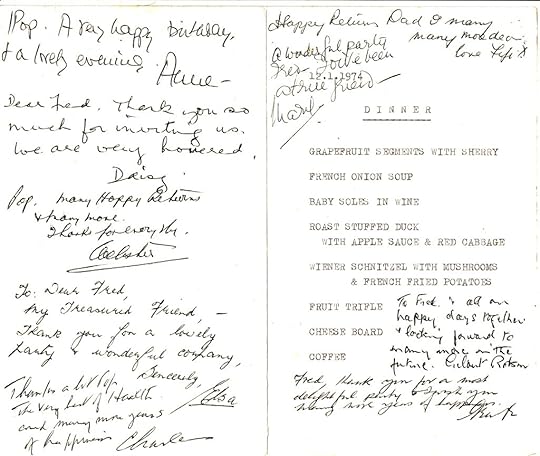 Pop. A very happy birthday,
& a lovely evening.
Anne -
Dear Fred. Thank you so
much for inviting us.
We are very honoured.
Daisy.
Pop. Many Happy Returns
& many more.
Thanks for everything.
To: Dear Fred,
My Treasured Friend, -
Thank you for a lovely
party & wonderful company,
Sincerely,
Elsa
Thanks a lot Pop,
The very best of Health
and many more years
of happiness Charles
Happy Returns Dad & many
many more dear.
love Fifi X
A wonderful party
Fred. You've been
a true friend -
12.1.1974
DINNER
GRAPEFRUIT SEGMENTS WITH SHERRY
FRENCH ONION SOUP
BABY SOLES IN WINE
ROAST STUFFED DUCK
WITH APPLE SAUCE & RED CABBAGE
WIENER SCHNITZEL WITH MUSHROOMS
& FRENCH FRIED POTATOES
FRUIT TRIFLE
CHEESE BOARD
COFFEE
To Fred. & all our
happy days together
& looking forward to
many more in the
future. Gilbert
Fred, thank you for a most
delightful party & I wish you
many more years of happiness.